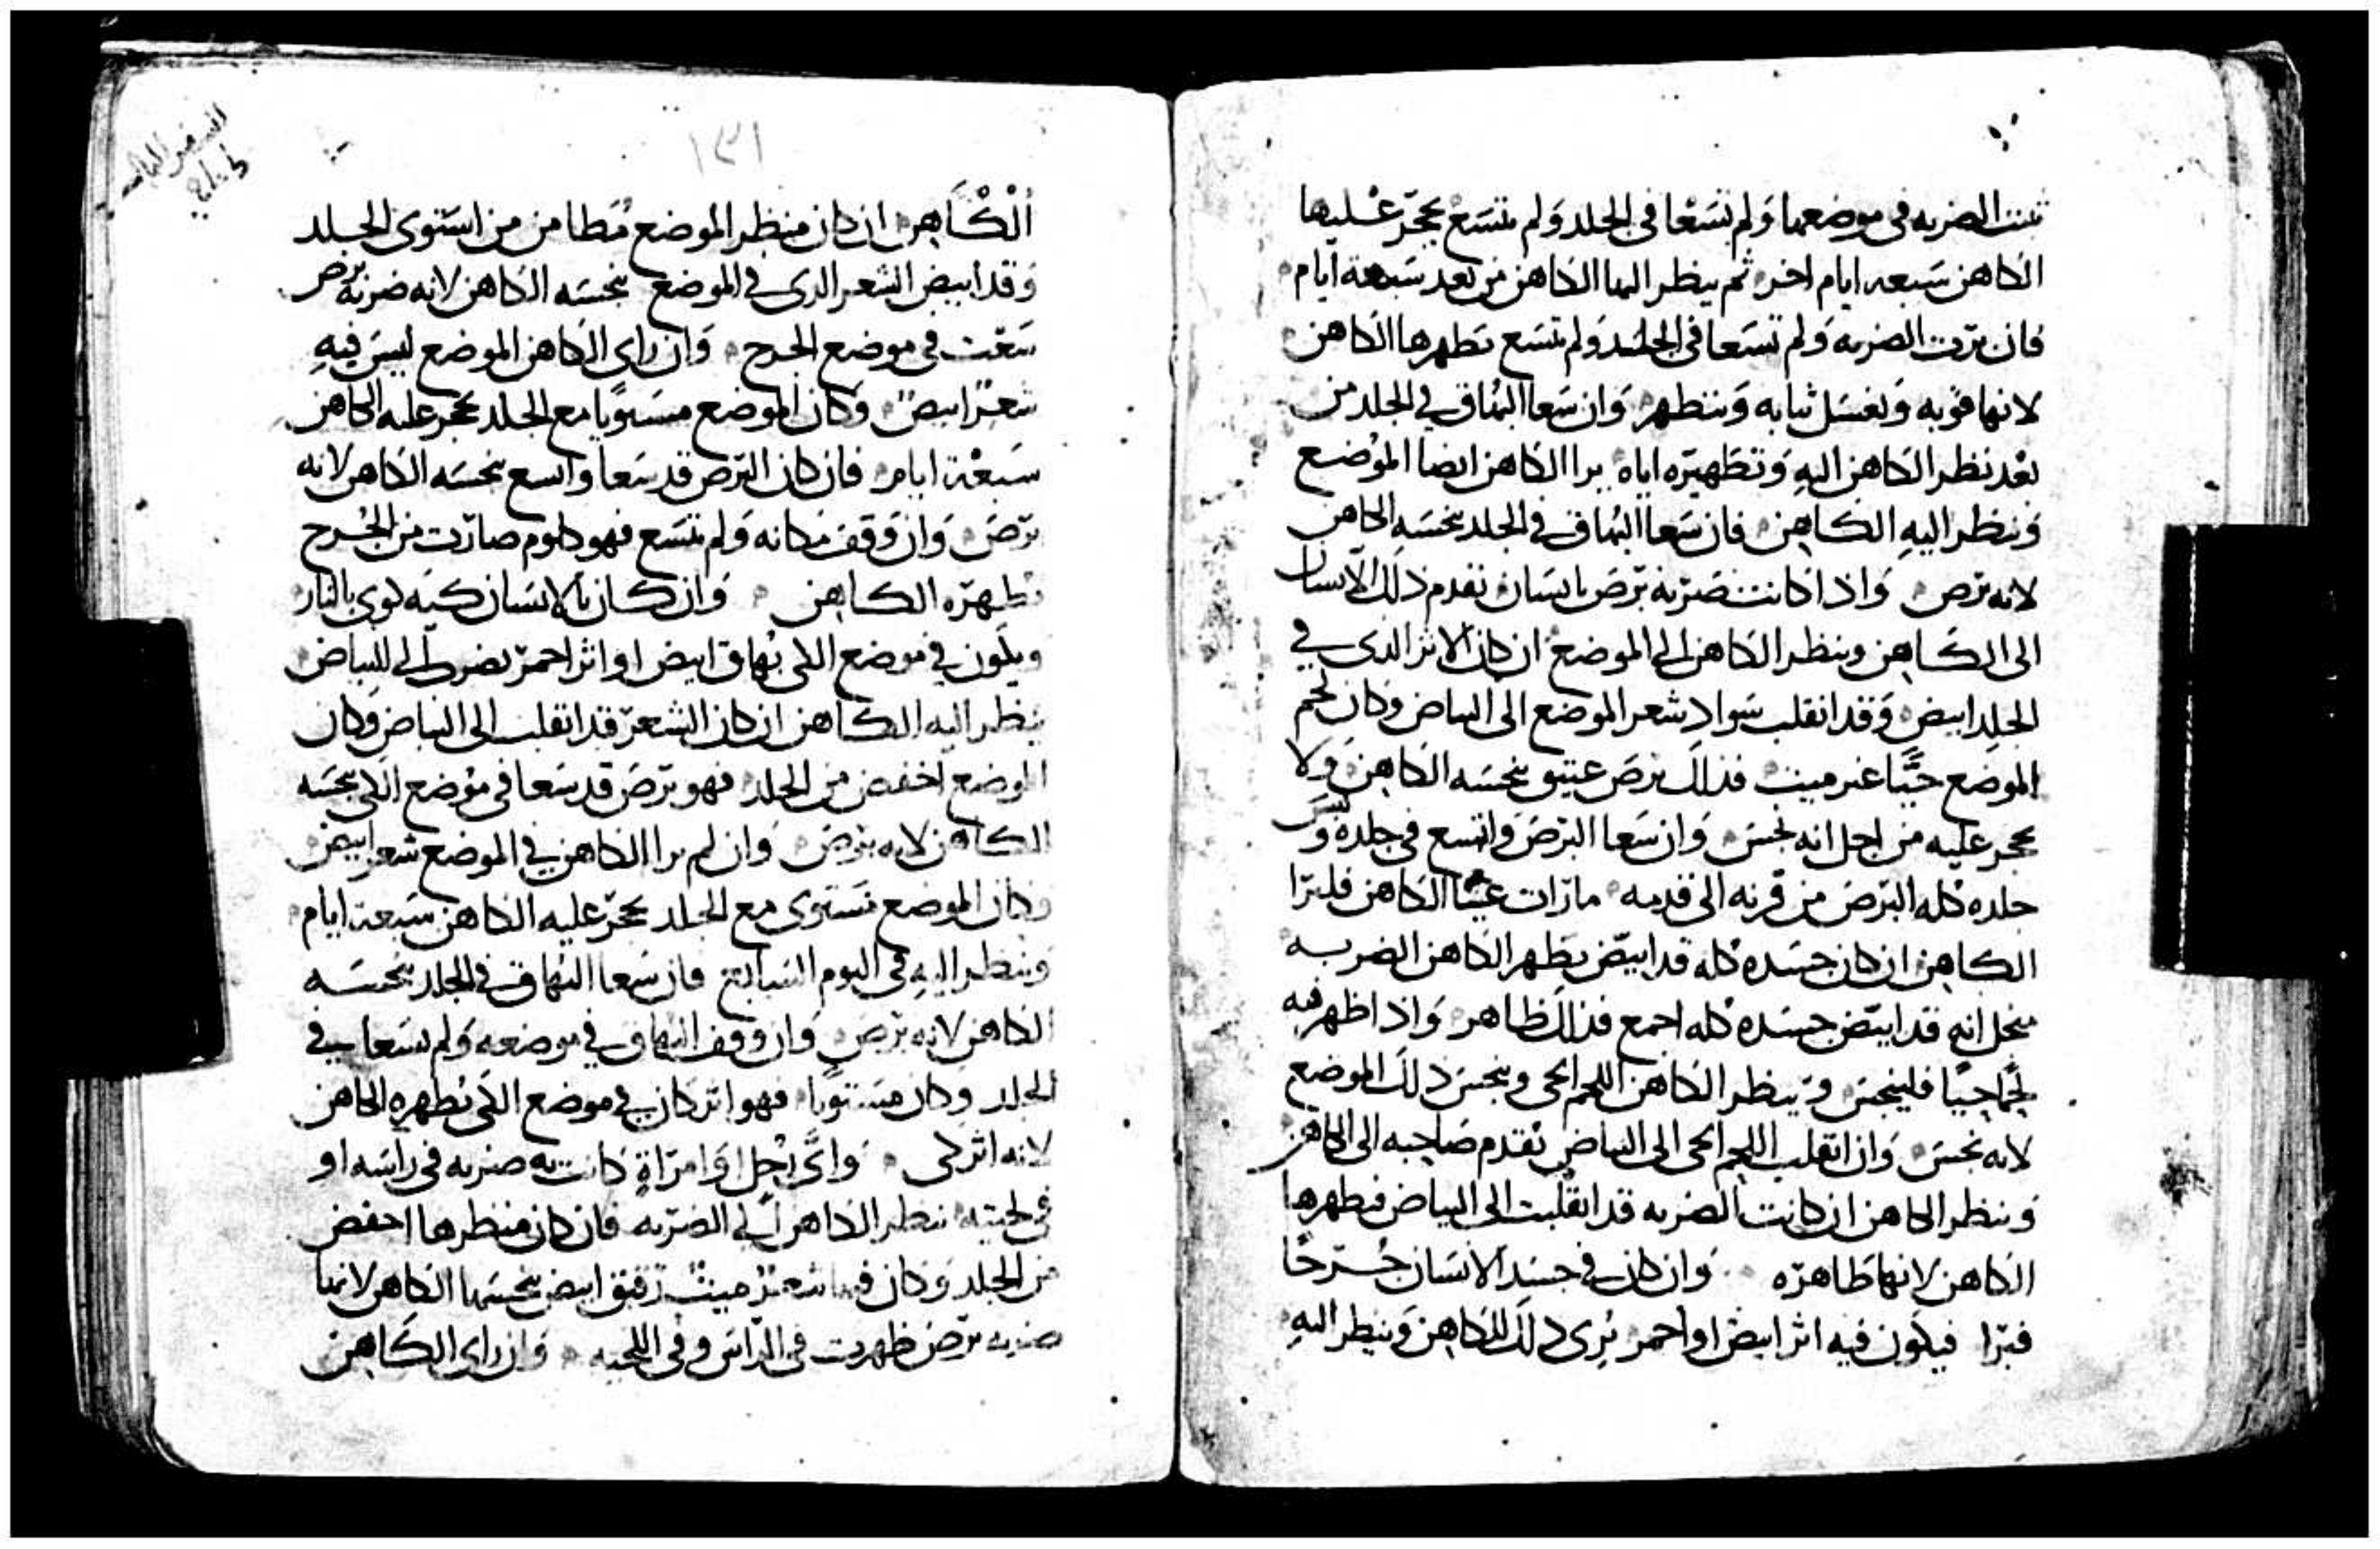 ثبتت الضربه فى موضعها وَلم تسَعَا فى الجلد وَلم تتسَع يحجّر عليها
الكاهن سَبعه ايام اخر ثم ينظر اليها الكاهن من بعد سَبعة ايام
فان برّت الضربه وَلم تسَعا فى الجلد وَلم تتسَع تطهرها الكاهن
لانها قوبه وَيغسَل ثيابه وَيتطهر وَان سَعا البُهاق في الجلد من
بعْد نظر الكاهن اليهِ وَتطَهيره اياه يرا الكاهن ايضا الموُضع
وَينظر اليهِ الكاهِن فان سَعا البُهاق في الجلد ينجسَه الكاهن
لانه برَص وَاذا كانت ضرَبة برَص بانسَان تقدم ذلك الانسان
الى الكاهِن وينظر الكاهن الى الموضع ان كان الاثر الدى في
الجلد ابيض وَقد انقلب سَواد شعر الموضع الى البياض وكان لحم
الموضع حيًّا غير ميت فذلك برَص عتيق ينجسَه الكاهن وَلا
يحجر عليه من اجل انه نجسَ وَان سَعا البرَص وَاتسع فى جلده وَلبسَ
جلده كله البرَص من قرنه الى قدمه مارات عينا الكاهن فليرا
الكاهِن ان كان جسَده كله قد ابيّض يطَهر الكاهن الضربه
منجل انه قد ابيّض جسَده كله اجمع فذلك ظاهر وَاذا ظهر فيه
لحمًا حيًا فلينجسَ وَينظر الكاهن اللحم الحى وينجسَ ذلك الموضع
لانه نجسَ وَان انقلب اللحم الحى الى البياض يقدم صَاحبه الى الكاهن
وَينظر الكاهن ان كانت الضربه قد انقلبت الى البياض فيطهرها
الكاهن لانها طاهرَه وَان كان في جسَد الانسَان جُرحًا
فبرَا فيكَون فيه اثر ابيض او احمر يُرى ذلك للكاهن وَينظر اليهِ
١٣١
الْكَاهِن ان كان منظر الموضع مُطامن من استوى الجلد
وَقد ابيض الشعر الدى في الموضع ينجسَه الكاهن لانه ضربة برَص
سَعَت فى موضع الجرح وَان راى الكاهن الموضع ليسَ فيهِ
شعرًا ابيض وَكان الموضع مسَتويًا مع الجلد يحجر عليه الكاهن
سَبعْة ايام فان كان البرَص قد سَعا واتسع ينجسَه الكاهن لانه
برَص وَان وَقف مكانه وَلم يتسَع فهو كلوم صارت من الجُرح
يطهرَه الكاهِن وَان كان بالانسَان كيَه كوى بالنار
ويكَون في موضع الكى بُهاق ابيض او اثر احمرَ يضرب الى البياض
ينظر اليه الكاهن ان كان الشعرَ قد انقلب الى البياض وكان
الموضع اخفض من الجلد فهو برَص قد سَعا فى موُضع الكى ينجسَه
الكاهن لانه برَص وَان لم يرا الكاهن في الموضع شعر ابيض
وكان الموضع مسَتوى مع الجلد يحجرَ عليه الكاهن سَبعة ايام
وينظر اليهِ فى اليوم السَابع فان سَعا البُهاق في الجلد ينجسَه
الكاهن لانه برَص وَان وقف البهاق في موضعه وَلم يسَعا في
الجلد وكان مسَتويًا فهو اثر كان في موضع الكى يُطهره الكاهن
لانه اثر كى وَاىّ رَجل اوَ امرَاةٍ كانت به ضربه فى راسَه او
فى لحيته ينظر الكاهن الى الضرَبه فان كان منظرها اخفض
من الجلد وَكان فيها شعرٌ ميتٌ رَقيق ابيض ينجسَها الكاهن لانها
ضربه برَص ظهرت فى الراسَ وفى اللحيه وَان راى الكَاهن